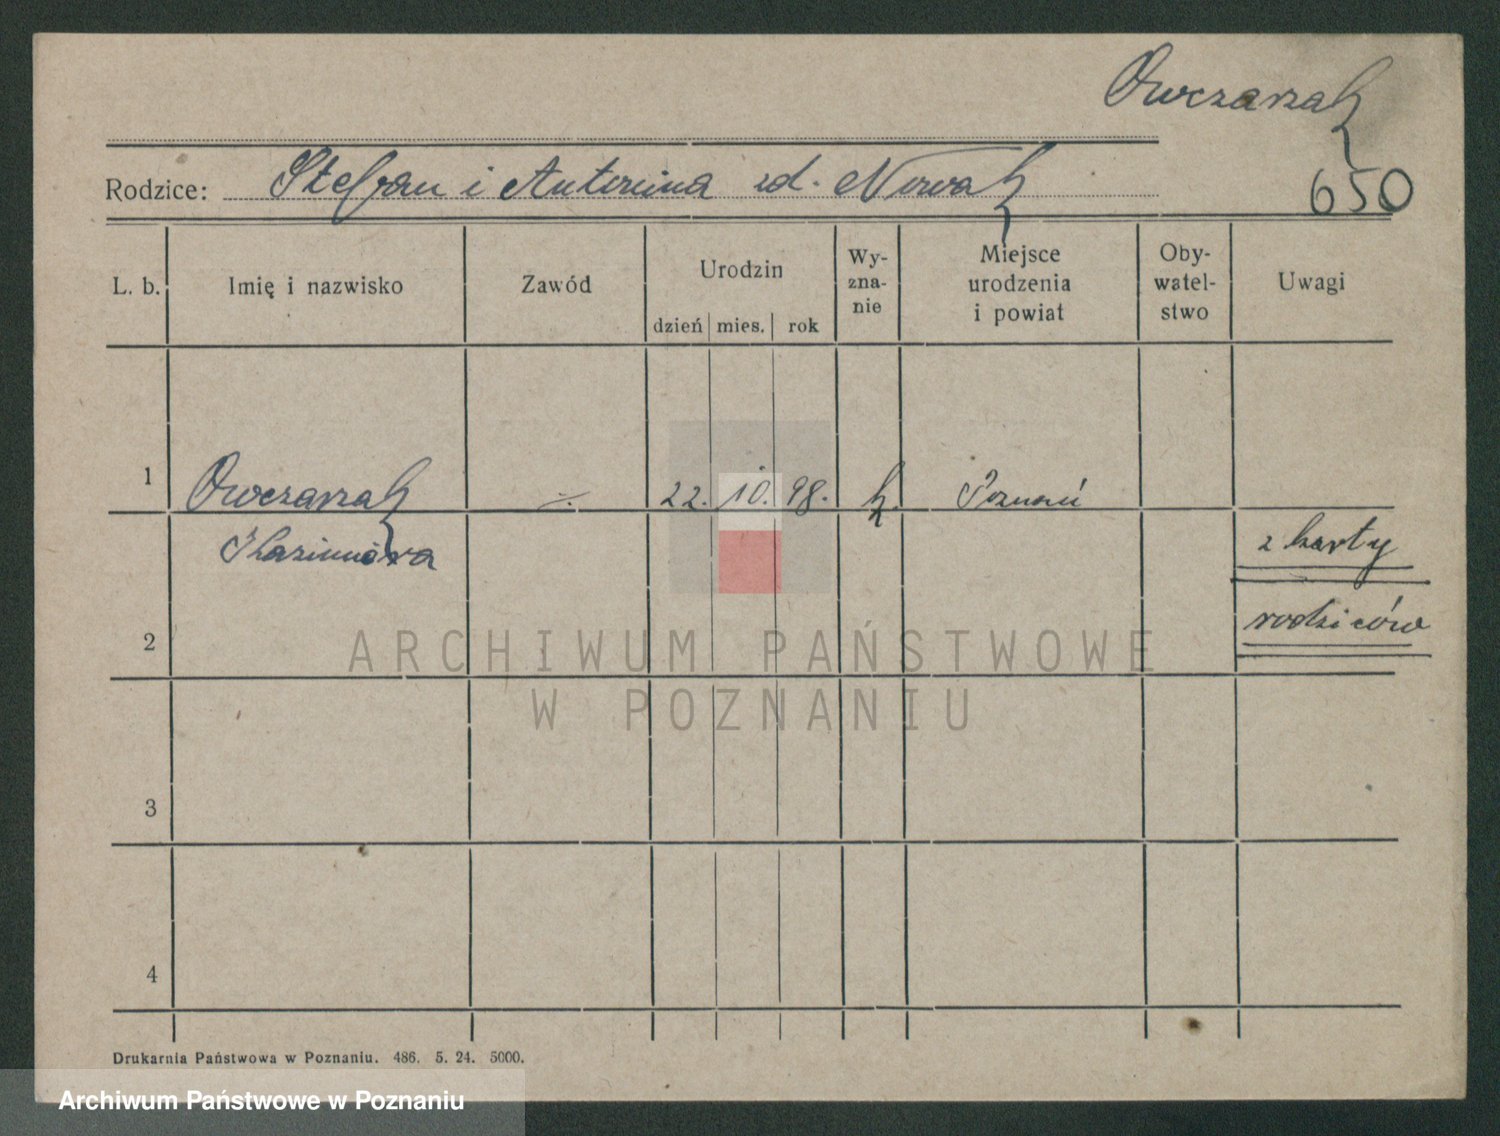 Owczarzak
Rodzice: Stefan i Antonina zd. Nowak
650
L. b.
Imię i nazwisko
Zawód
Urodzin
dzień mies. rok
Wy-
zna-
nie
Miejsce
urodzenia
i powiat
Oby-
watel-
stwo
Uwagi
1 Owczarzak ·/· 22. 10. 98. k. Poznań
Kazimiera
z karty
rodziców
2
ARCHIWUM PAŃSTWOWE
W POZNANIU
3
4
Drukarnia Państwowa w Poznaniu. 486. 5. 24. 5000.
Archiwum Państwowe w Poznaniu